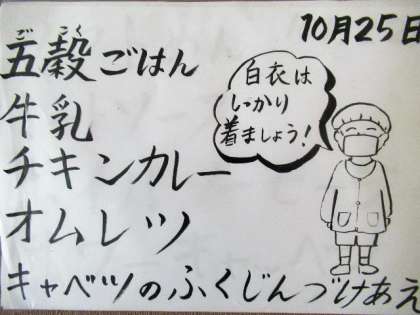 10月25日
ごこく
五穀ごはん
牛乳
チキンカレー
オムレツ
キャベツのふくじんづけあえ
白衣は
しっかり
着ましょう!